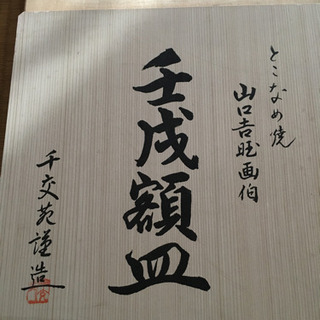 とこなめ焼
山口吉旺画伯
壬戌額皿
千交苑謹造